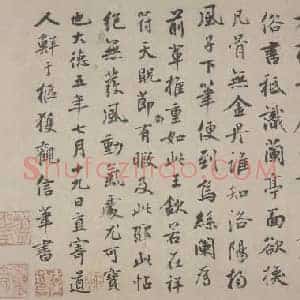 俗書祇識蘭亭面欲換
凡骨無金丹誰知洛陽楊
風子下筆便到烏絲闌為
前輩推重如此王欽若在祥
符天貺節有暇及此耶此帖
絕無發風動氣處尤可寶
也大德五年七月十九日直寄道
人鮮于樞獲觀信筆書